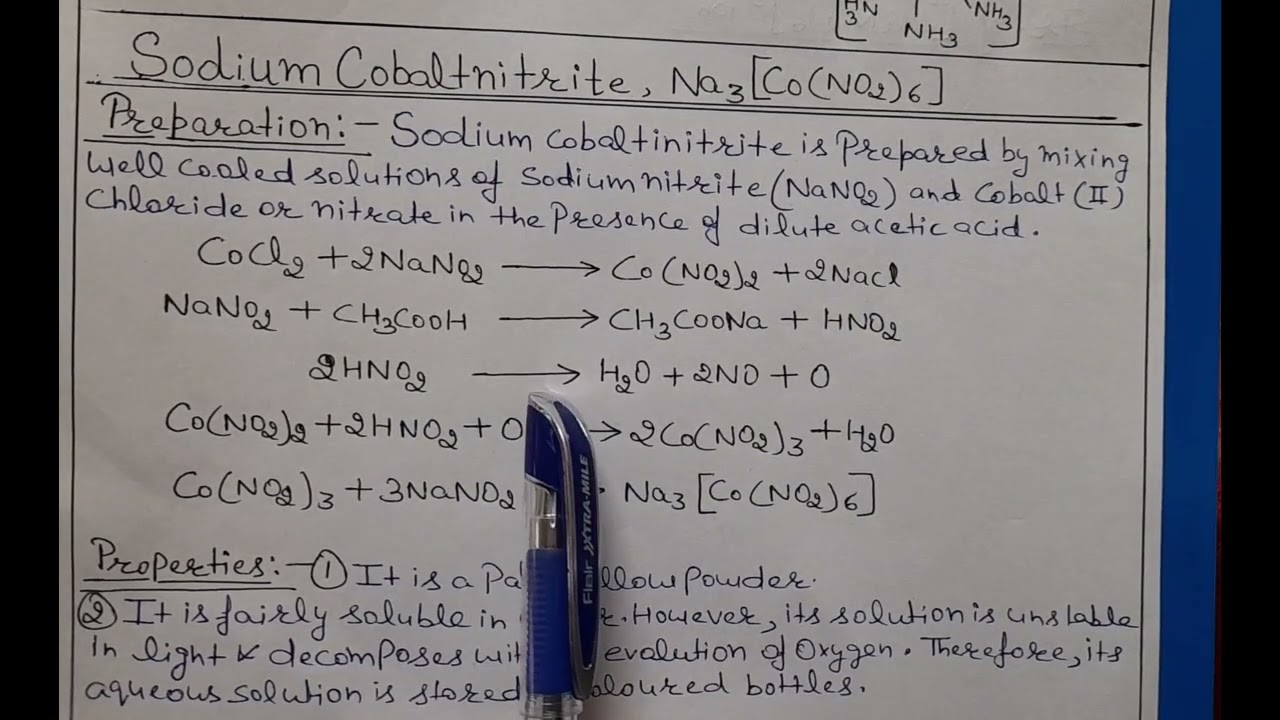 H3N NH3
NH3
Sodium Cobaltnitrite, Na3[Co(NO2)6]
Preparation:- Sodium cobaltinitrite is Prepared by mixing
Well cooled solutions of Sodium nitrite (NaNO2) and Cobalt (II)
Chloride or nitrate in the Presence of dilute acetic acid.
CoCl2 + 2NaNO2 → Co(NO2)2 + 2NaCl
NaNO2 + CH3COOH → CH3COONa + HNO2
2HNO2 → H2O + 2NO + O
Co(NO2)2 + 2HNO2 + O → 2Co(NO2)3 + H2O
Co(NO2)3 + 3NaNO2 Na3[Co(NO2)6]
Properties:- ① It is a Pa llow Powder.
② It is fairly soluble in r. However, its solution is unstable
in light & decomposes wit evalution of Oxygen. Therefore, its
aqueous solution is stored oloured bottles.
Flair XTRA-MILE